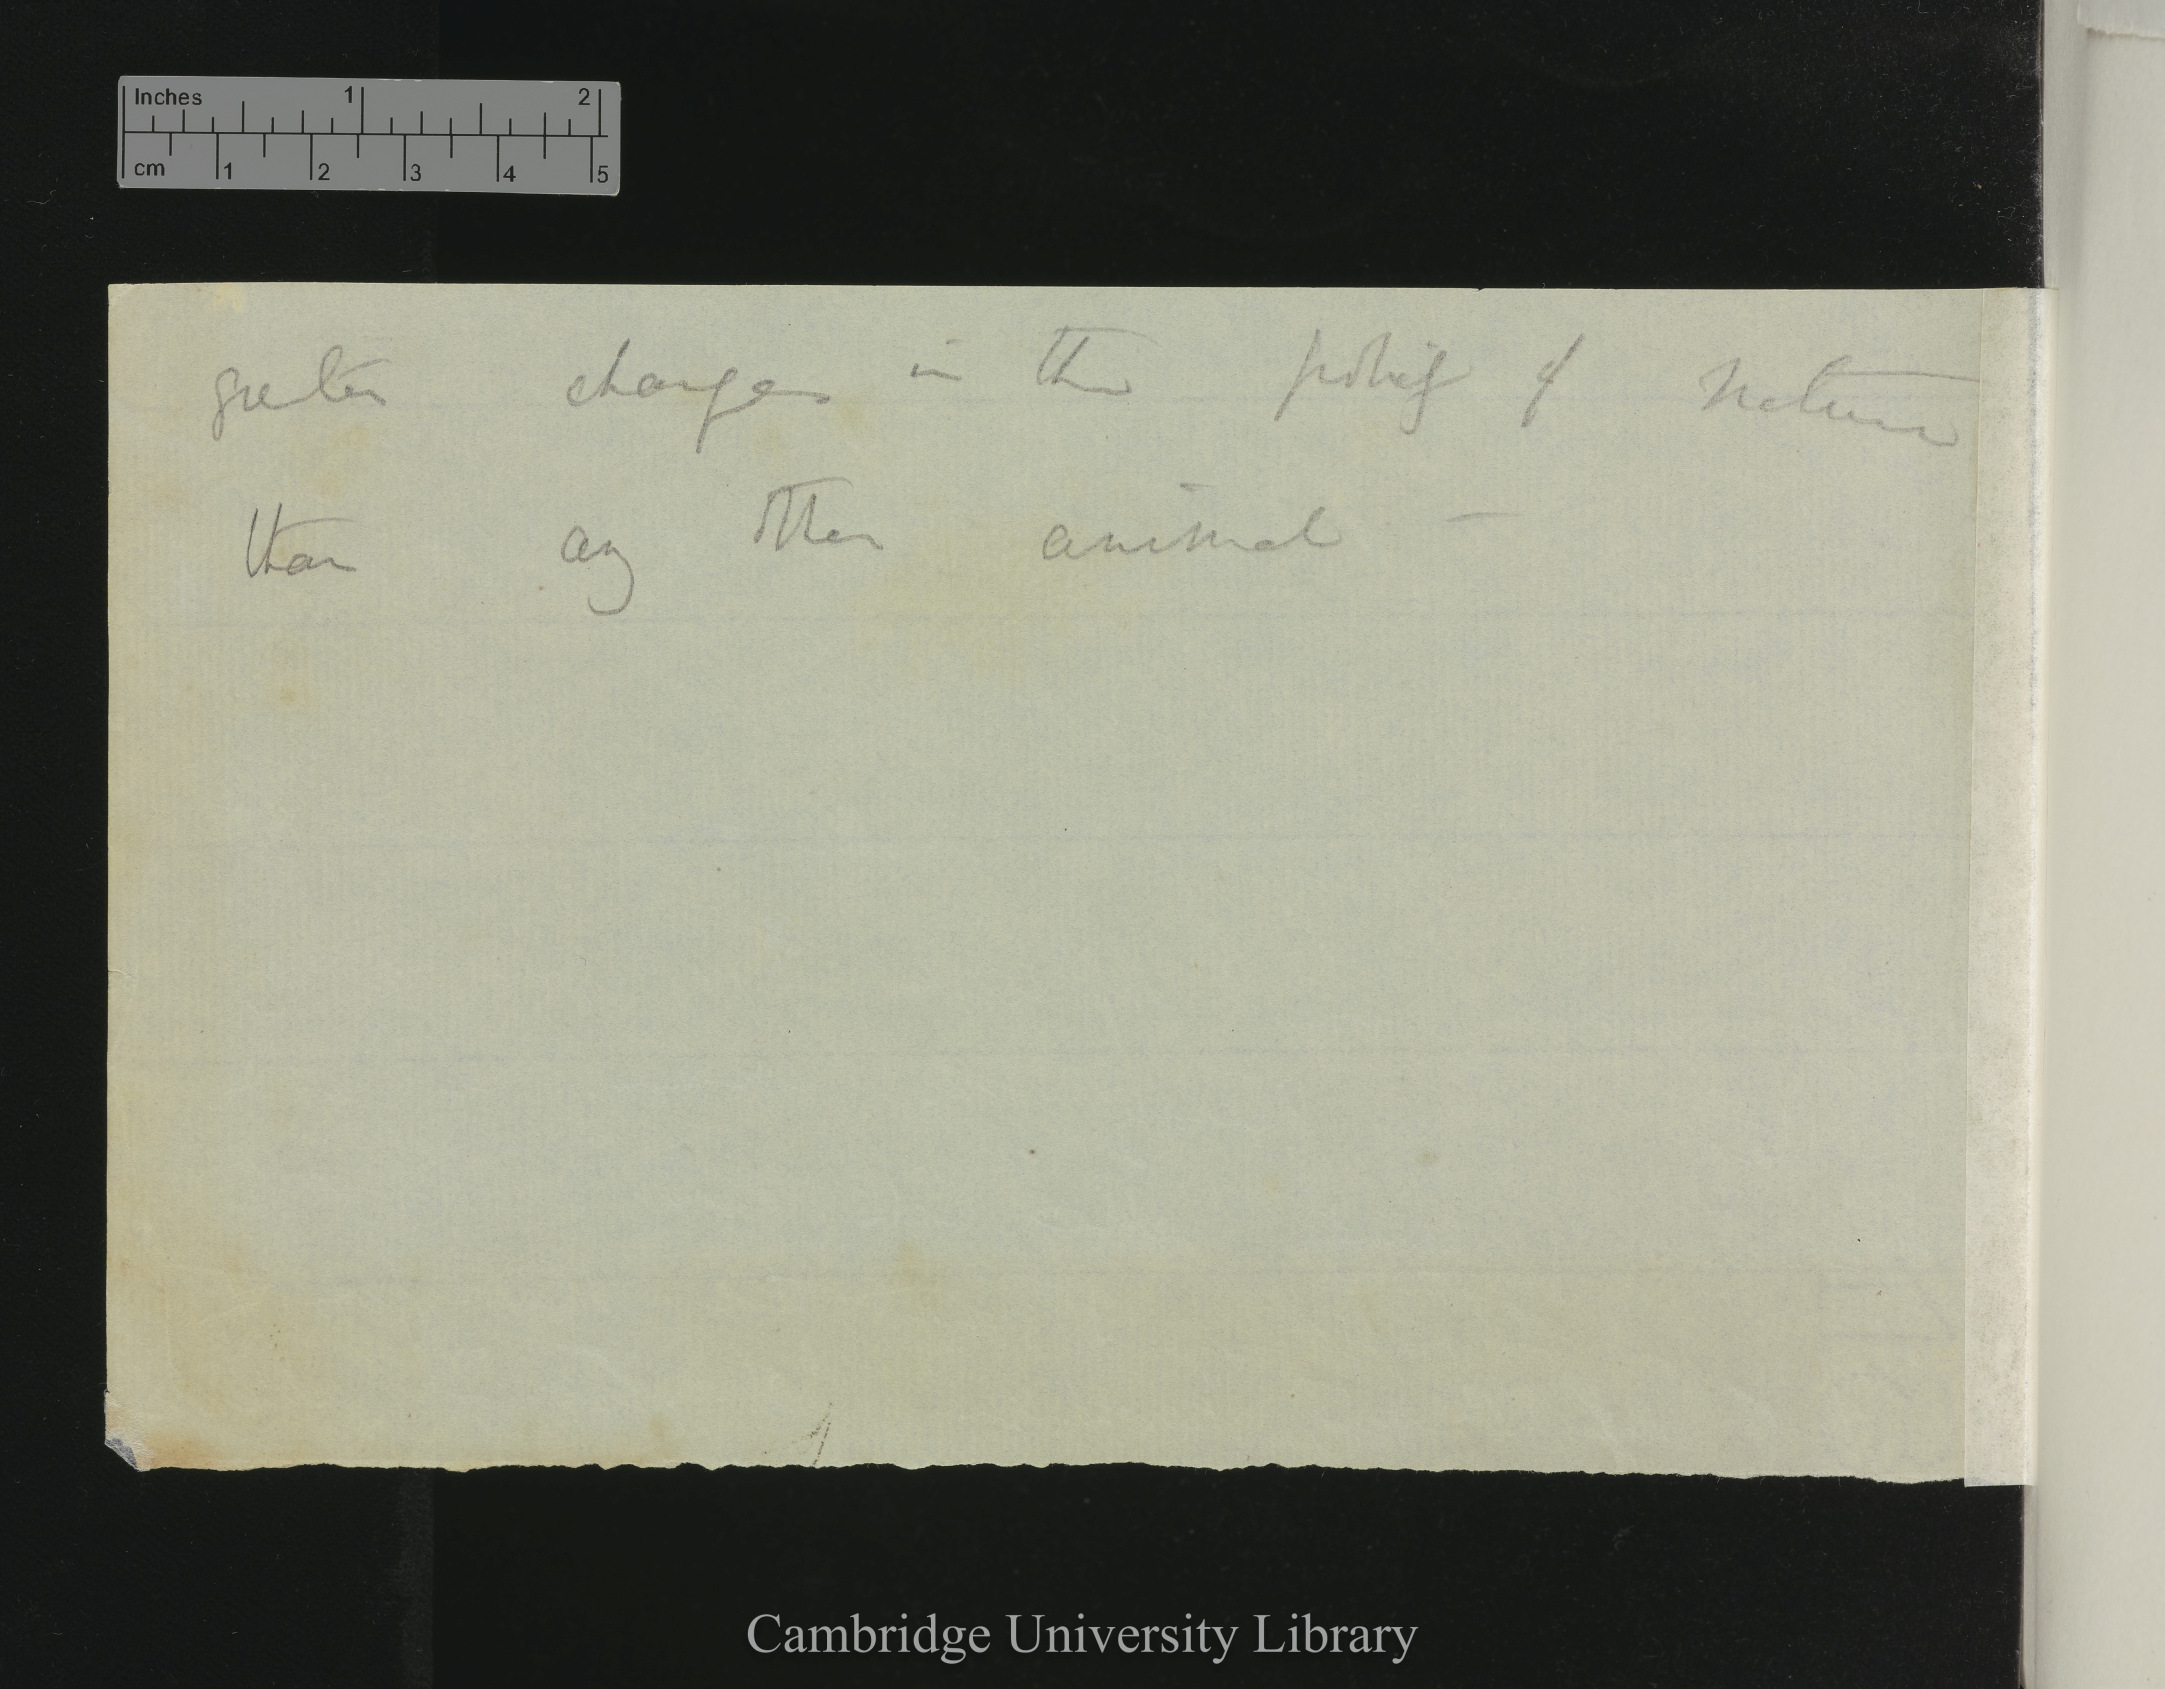 Inches 1 2
cm 1 2 3 4 5
greater changes in the polity of nature
than any other animal —
Cambridge University Library